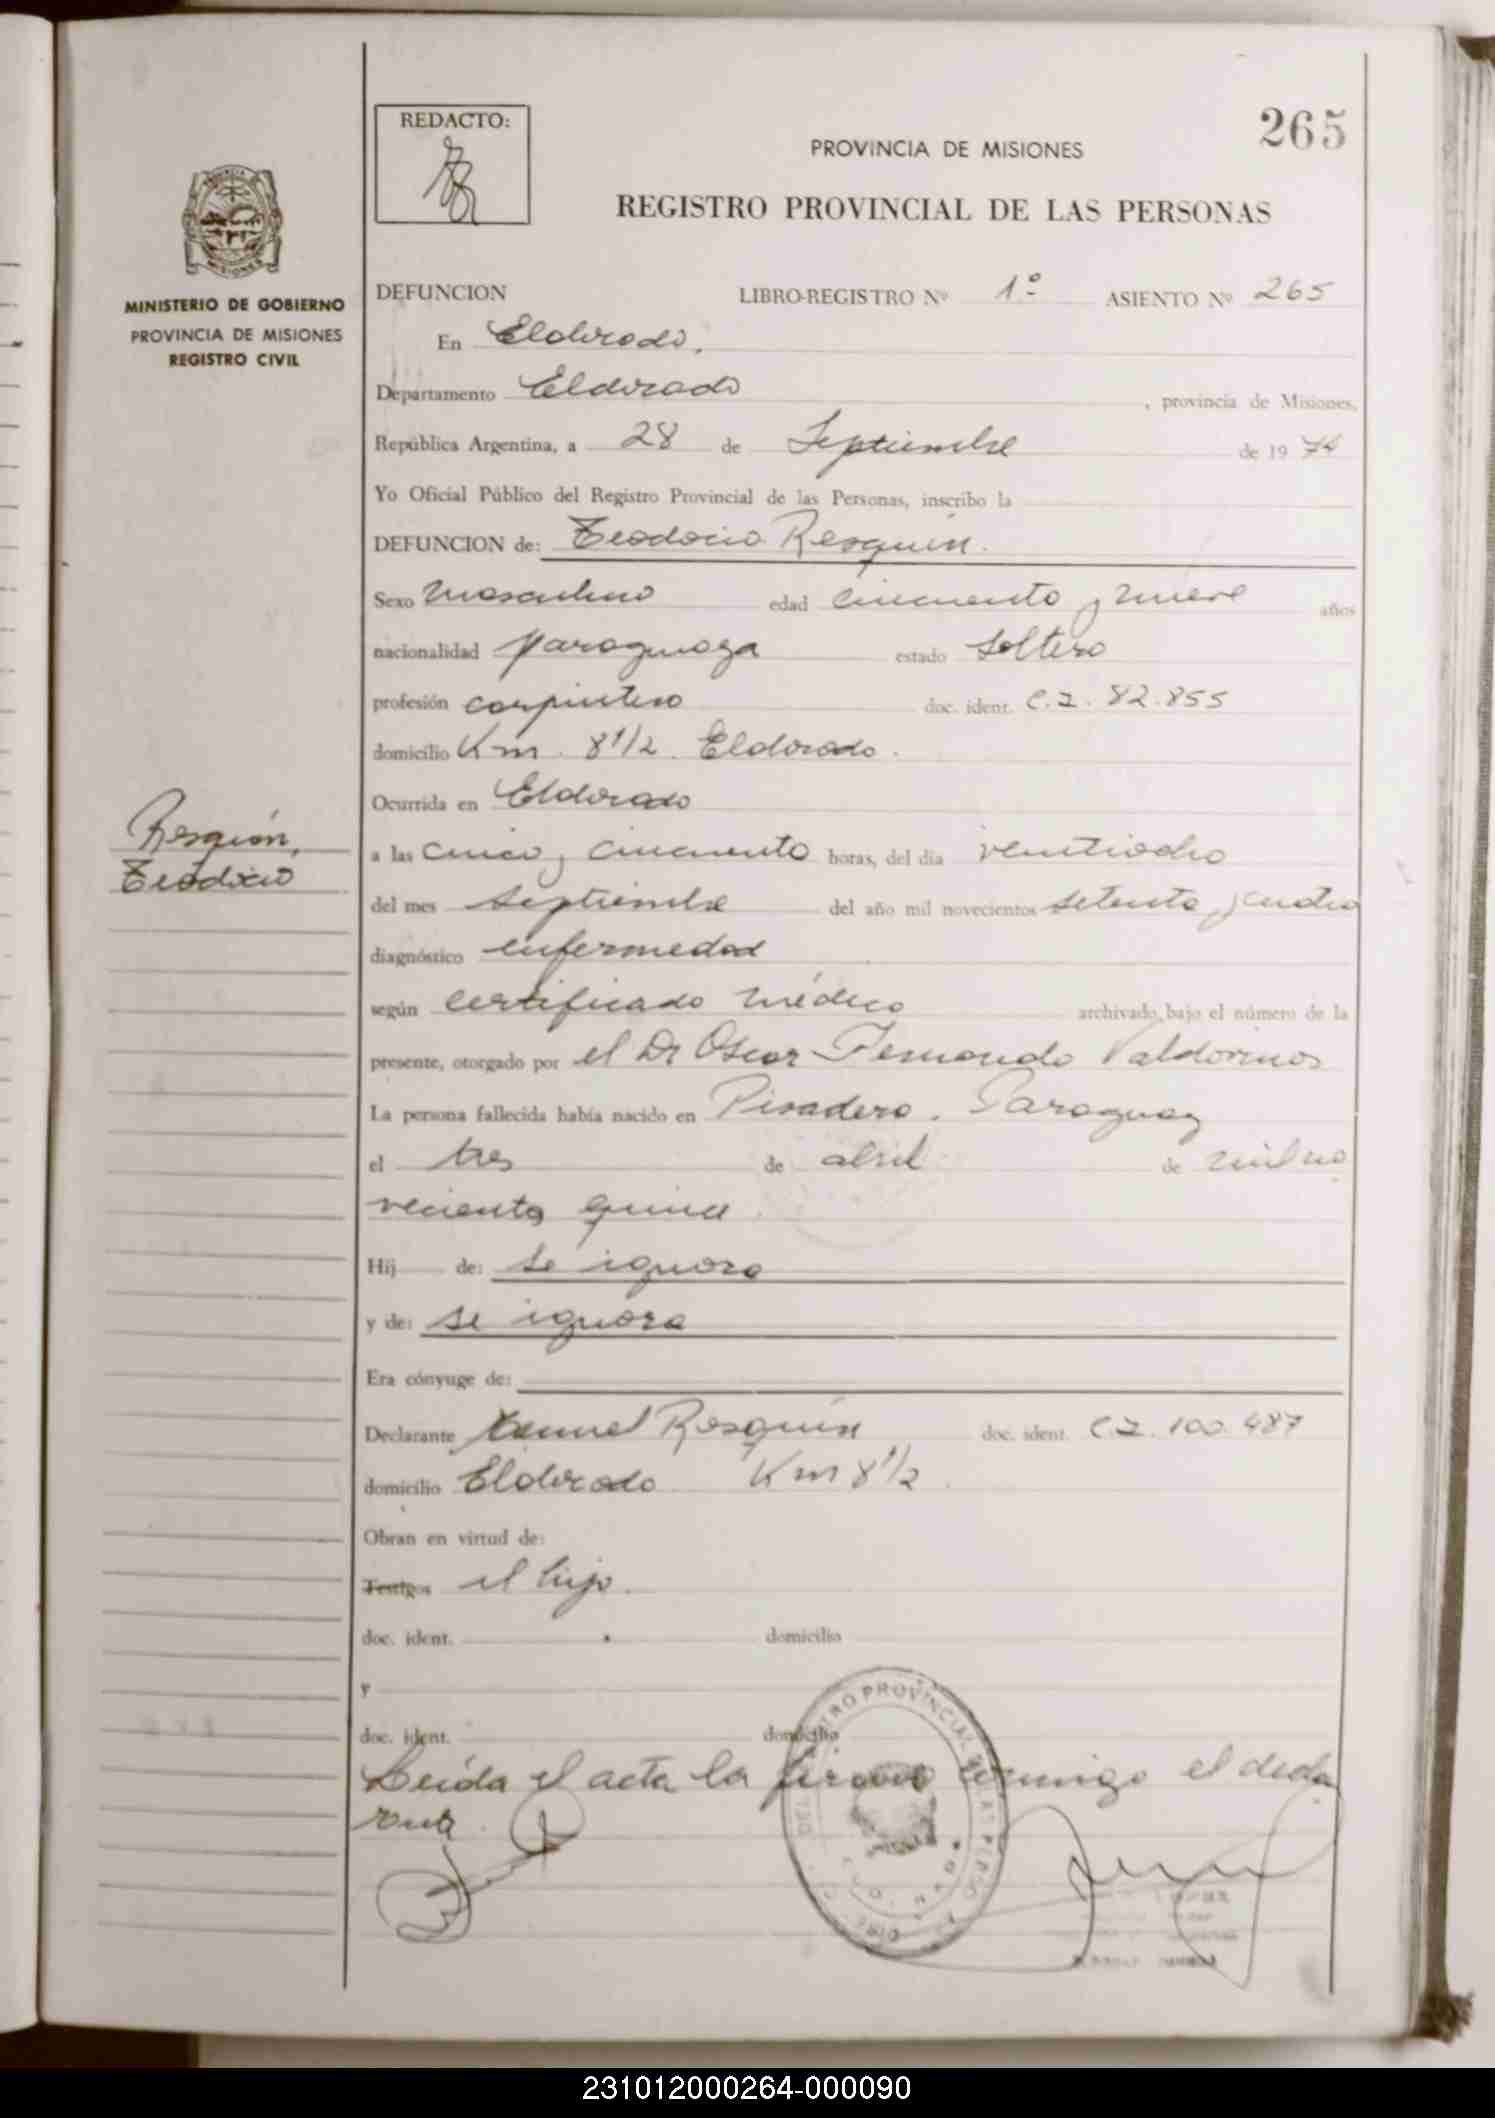 265
REDACTO:
PROVINCIA DE MISIONES
REGISTRO PROVINCIAL DE LAS PERSONAS
MISIONES
MINISTERIO DE GOBIERNO
PROVINCIA DE MISIONES
REGISTRO CIVIL
DEFUNCION LIBRO-REGISTRO Nº 1º ASIENTO Nº 265
En Eldorado.
Departamento Eldorado, provincia de Misiones,
República Argentina, a 28 de Septiembre de 1974
Yo Oficial Público del Registro Provincial de las Personas, inscribo la
DEFUNCION de: Teodocio Resquin.
Sexo masculino edad cincuenta y nueve años
nacionalidad paraguaya estado soltero
profesión carpintero doc. ident. C.I. 82.855
domicilio Km. 8 1/2 Eldorado.
Ocurrida en Eldorado
Resquin,
Teodocio
a las cinco y cincuenta horas, del día veintiocho
del mes septiembre del año mil novecientos setenta y cuatro
diagnóstico enfermedad
según certificado médico archivado bajo el número de la
presente, otorgado por el Dr Oscar Fernando
La persona fallecida había nacido en Paraguay
el tres de abril de mil no
vecientos quince
Hij de: se ignora
y de: se ignora
Era cónyuge de:
Declarante Resquin doc. ident. C.I. 100.487
domicilio Eldorado Km 8 1/2
Obran en virtud de:
Testigos el hijo.
doc. ident. domicilio
y
doc. ident. domicilio
Leída el acta la firma conmigo el decla
rante.
231012000264-000090